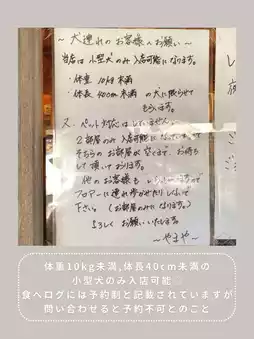 ～犬連れのお客様へお願い～
当店は小型犬のみ入店可能になります。
・体重 10kg未満
・体長 40cm未満 の犬に限らせて
もらいます。
又、ペット対応は
2部屋のみ 入店可能になって
そちらのお部屋が空くまで、お待ち
して頂いております。
他のお客様も
フロアーに連れ歩かせたりしないで
下さい。(お部屋のみになります。)
よろしくお願いいたします。
～やまや～
体重10kg未満,体長40cm未満の
小型犬のみ入店可能
食べログには予約制と記載されていますが
問い合わせると予約不可とのこと